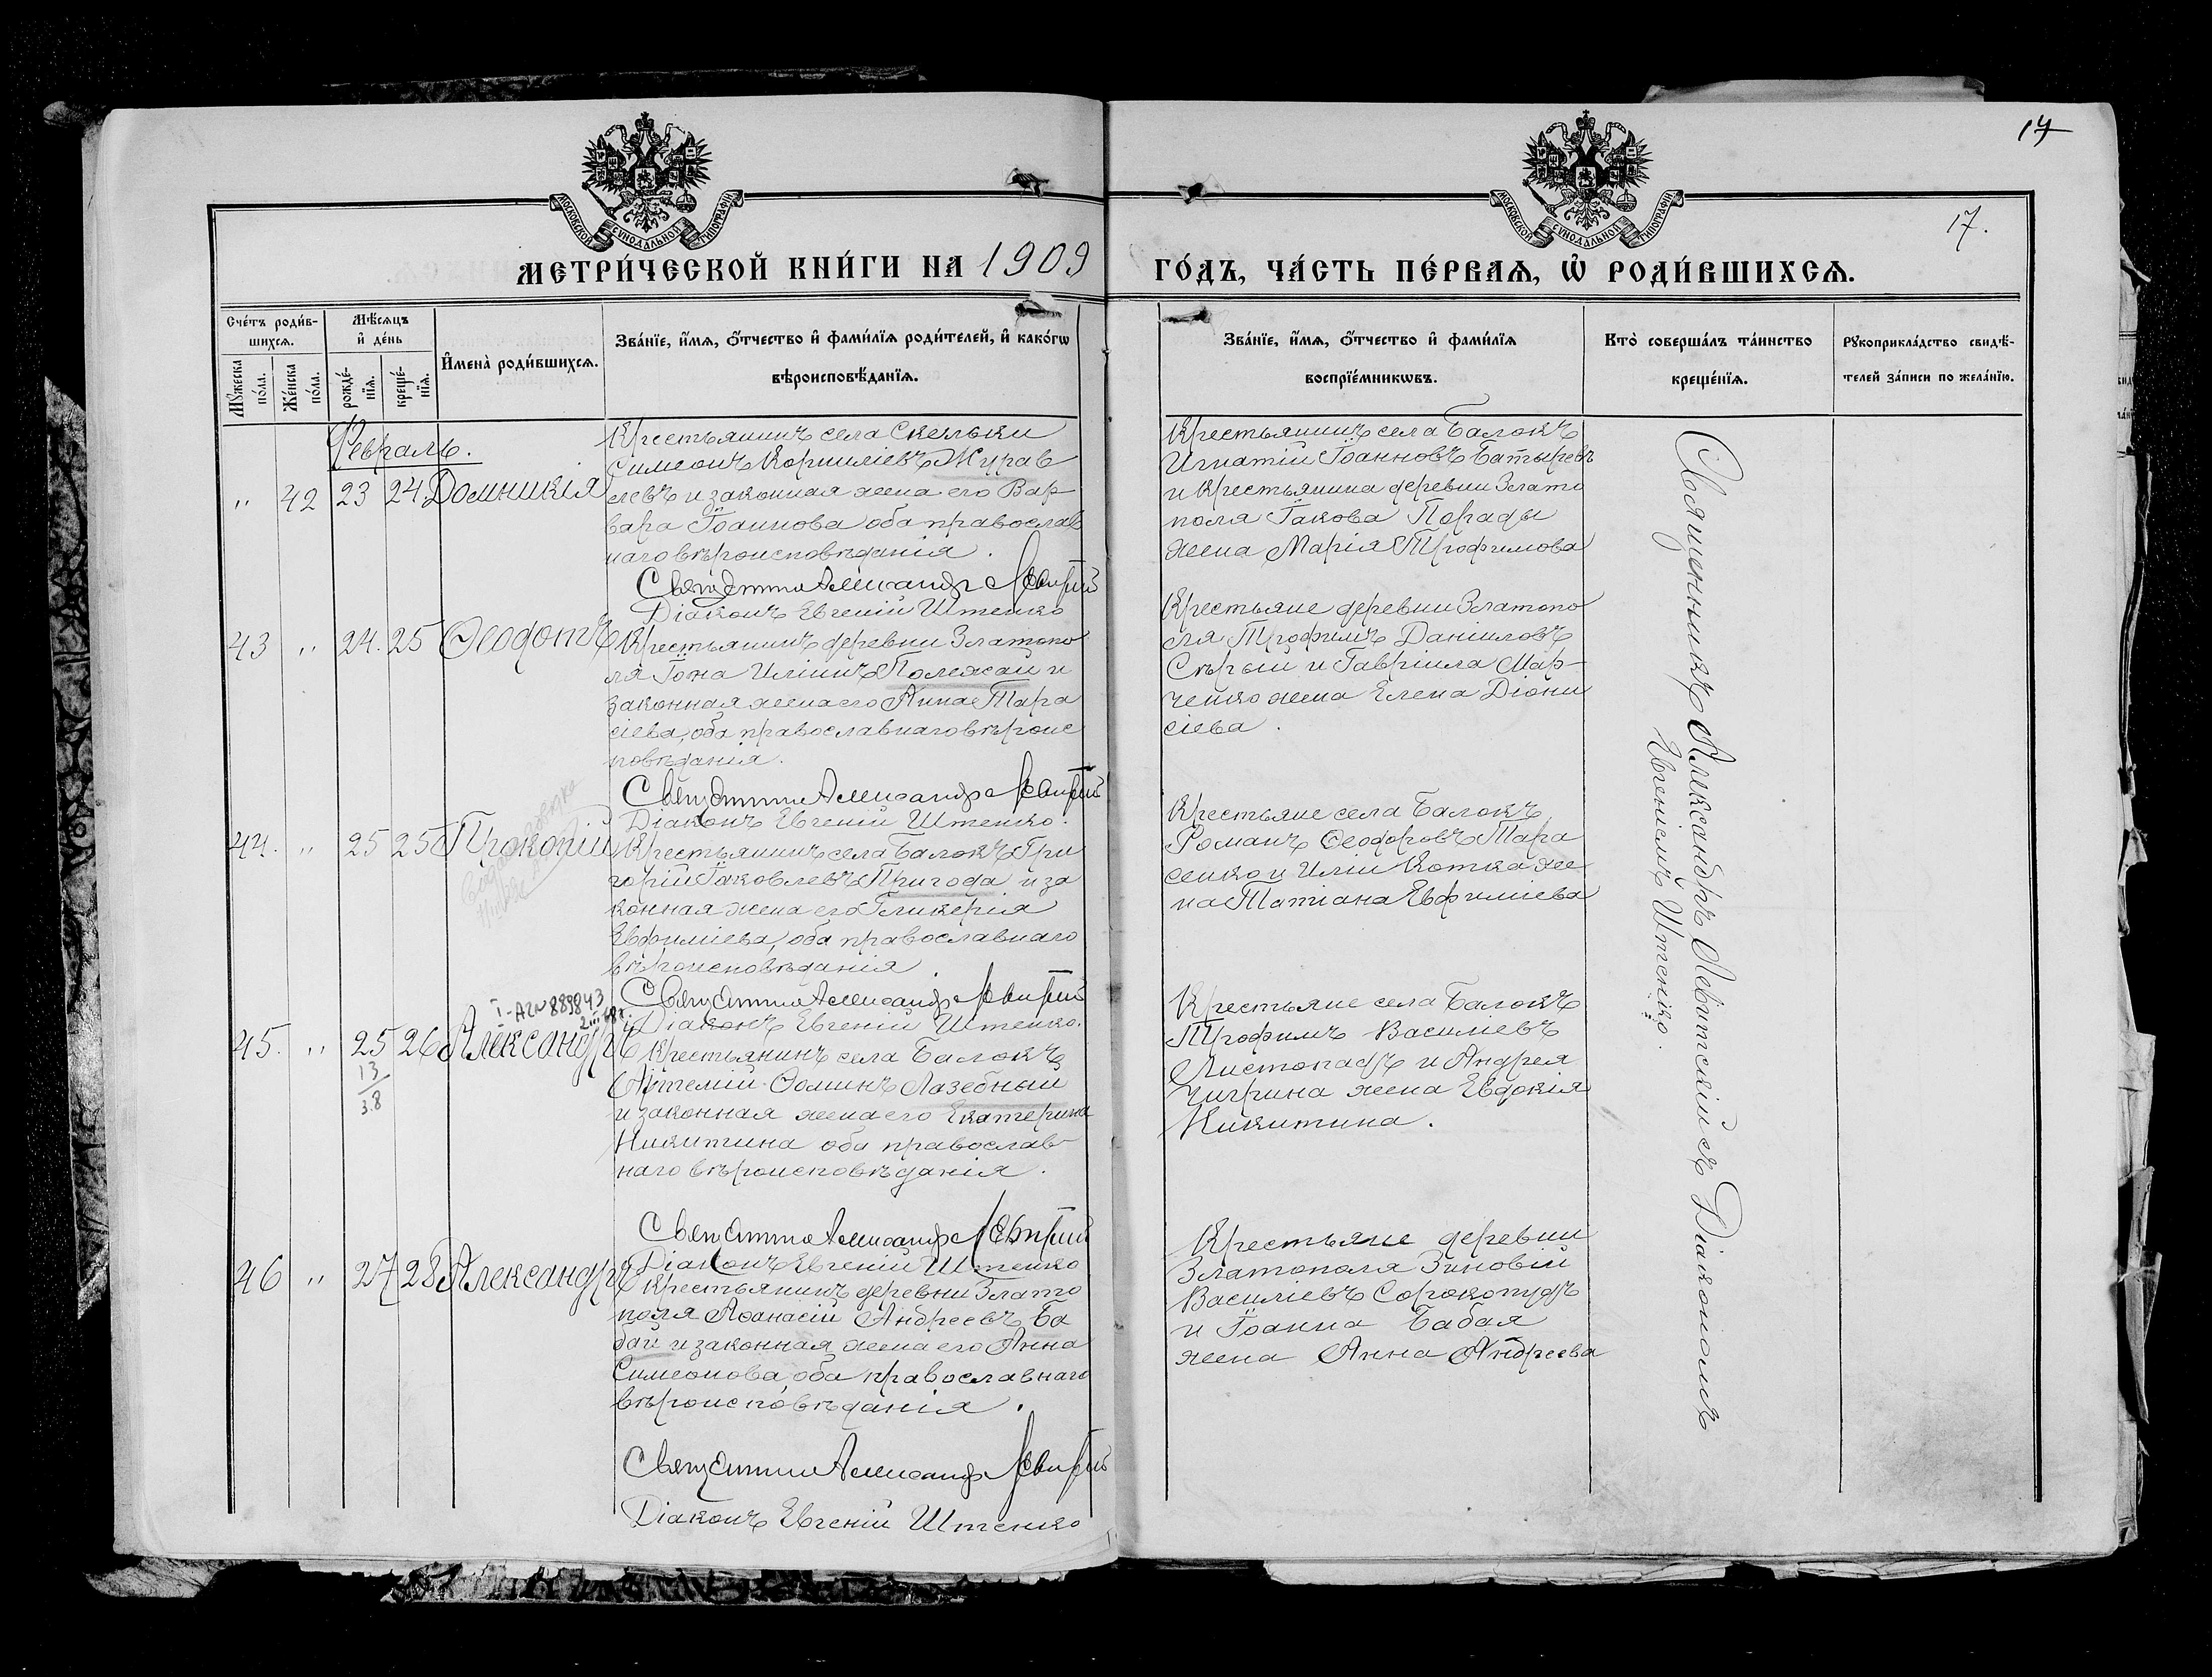 17
17.
МОСКОВСКОЙ СѴНОДАЛЬНОЙ ТИПОГРАФІИ
МОСКОВСКОЙ СѴНОДАЛЬНОЙ ТИПОГРАФІИ
МЕТРИ́ЧЕСКОЙ КНИ́ГИ НА 1909
ГО́ДЪ, ЧА́СТЬ ПЕ́РВАѦ, Ѡ҆ РОДИ́ВШИХСѦ.
Сче́тъ роди́в-
шихсѧ.
Мꙋжеска по́ла.
Же́нска по́ла.
Мѣ́сѧцъ
и҆ де́нь
рожде́-
нїѧ.
креще́-
нїѧ.
И҆мена̀ роди́вшихсѧ.
Зва́нїе, и҆́мѧ, ѻ҆́тчество и҆ фами́лїѧ роди́телей, и҆ како́гѡ
вѣроисповѣ́данїѧ.
Зва́нїе, и҆́мѧ, ѻ҆́тчество и҆ фами́лїѧ
воспрїе́мникѡвъ.
Кто̀ соверша́лъ та́инство
креще́нїѧ.
Рꙋкоприкла́дство свидѣ́-
телей за́писи по жела́нїю.
Февраль.
" 42 23 24 Домникія
Крестьянинъ села Скельки
Симеонъ Корниліевъ Журав
левъ и законная жена его Вар-
вара Іоаннова оба православ
наго вѣроисповѣданія.
Священникъ Александръ Левитскій
Діаконъ Евгеній Штепко
Крестьянинъ села Балокъ
Игнатій Іоанновъ Батыревъ
и Крестьянина деревни Злато
поля Іакова Порады
жена Марія Трофимова
43 " 24. 25 Ѳеодотъ
Крестьянинъ деревни Златопо
ля Іона Иліинъ Полежай и
законная жена его Анна Тара
сіева, оба православнаго вѣроис
повѣданія.
Священникъ Александръ Левитскій
Діаконъ Евгеній Штепко.
Крестьяне деревни Златопо
ля Трофимъ Даніиловъ
Сѣрый и Гавріила Мар-
ченко жена Елена Діони
сіева.
44. " 25 25 Прокопій
Крестьянинъ села Балокъ Гри
горій Іаковлевъ Пригода и за
конная жена его Гликерія
Евфиміева, оба православнаго
вѣроисповѣданія.
Священникъ Александръ Левитскій
Діаконъ Евгеній Штепко.
Крестьяне села Балокъ
Романъ Ѳеодоровъ Тара
сенко и Иліи Котка же
на Татіана Евфиміева
I-АГ№889843
45. " 25 26 Александръ
13
3.8
Крестьянинъ села Балокъ
Артемій Ѳоминъ Лазебный
и законная жена его Екатерина
Никитина оба православ-
наго вѣроисповѣданія.
Священникъ Александръ Левитскій
Діаконъ Евгеній Штепко
Крестьяне села Балокъ
Трофимъ Василіевъ
Листопадъ и Андрея
Чигрина жена Евдокія
Никитина.
46 " 27 28 Александръ
Крестьянинъ деревни Злато
поля Аѳанасій Андреевъ Ба
бай и законная жена его Анна
Симеонова, оба православнаго
вѣроисповѣданія.
Священникъ Александръ Левитскій
Діаконъ Евгеній Штепко
Крестьяне деревни
Златополя Зиновій
Василіевъ Сорокопудъ
и Іоанна Бабая
жена Анна Андреева
Священникъ Александръ Левитскій съ Діакономъ
Евгеніемъ Штепко.